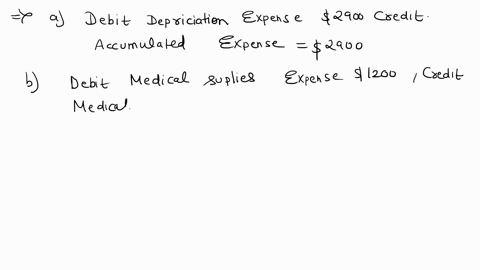 => a) Debit Depriciation Expense $2900 Credit.
Accumulated Expense = $2900
b) Debit Medical suplies Expense $1200, Credit
Medical.